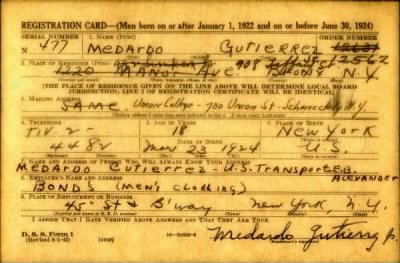 REGISTRATION CARD—(Men born on or after January 1, 1922 and on or before June 30, 1924)
SERIAL NUMBER 1. NAME (Print) ORDER NUMBER
N 477 MEDARDO GUTIERREZ 12631
12562
2. PLACE OF RESIDENCE (Print)
1220 MANOR AVE. 908 BRONX N.Y.
[THE PLACE OF RESIDENCE GIVEN ON THE LINE ABOVE WILL DETERMINE LOCAL BOARD
JURISDICTION; LINE 2 OF REGISTRATION CERTIFICATE WILL BE IDENTICAL]
3. MAILING ADDRESS
SAME Union College - 700 Union St - Schenectady N.Y.
4. TELEPHONE 5. AGE IN YEARS 6. PLACE OF BIRTH
TIV. 2- 18 NEW YORK
DATE OF BIRTH
4482 Mar 23 1924 U.S.
7. NAME AND ADDRESS OF PERSON WHO WILL ALWAYS KNOW YOUR ADDRESS
MEDARDO GUTIERREZ - U.S. TRANSPORT
ALEXANDER
8. EMPLOYER'S NAME AND ADDRESS
BONDS (MEN'S CLOTHING)
9. PLACE OF EMPLOYMENT OR BUSINESS
45 St & B'way New York, N.Y.
I AFFIRM THAT I HAVE VERIFIED ABOVE ANSWERS AND THAT THEY ARE TRUE.
D. S. S. Form 1
(over)
Medardo Gutierrez Jr.